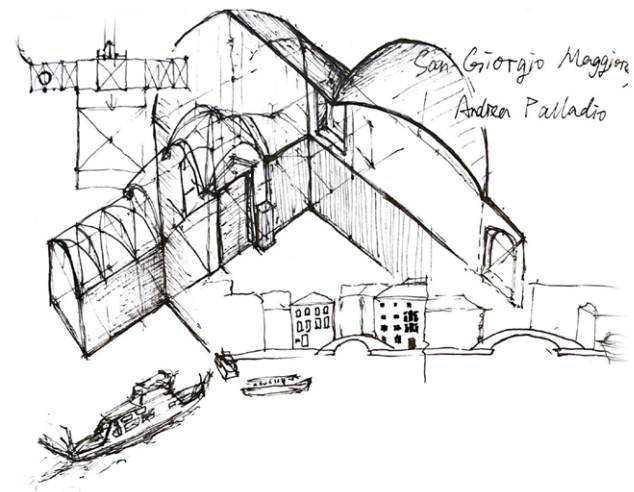 San Giorgio Maggiore,
Andrea Palladio